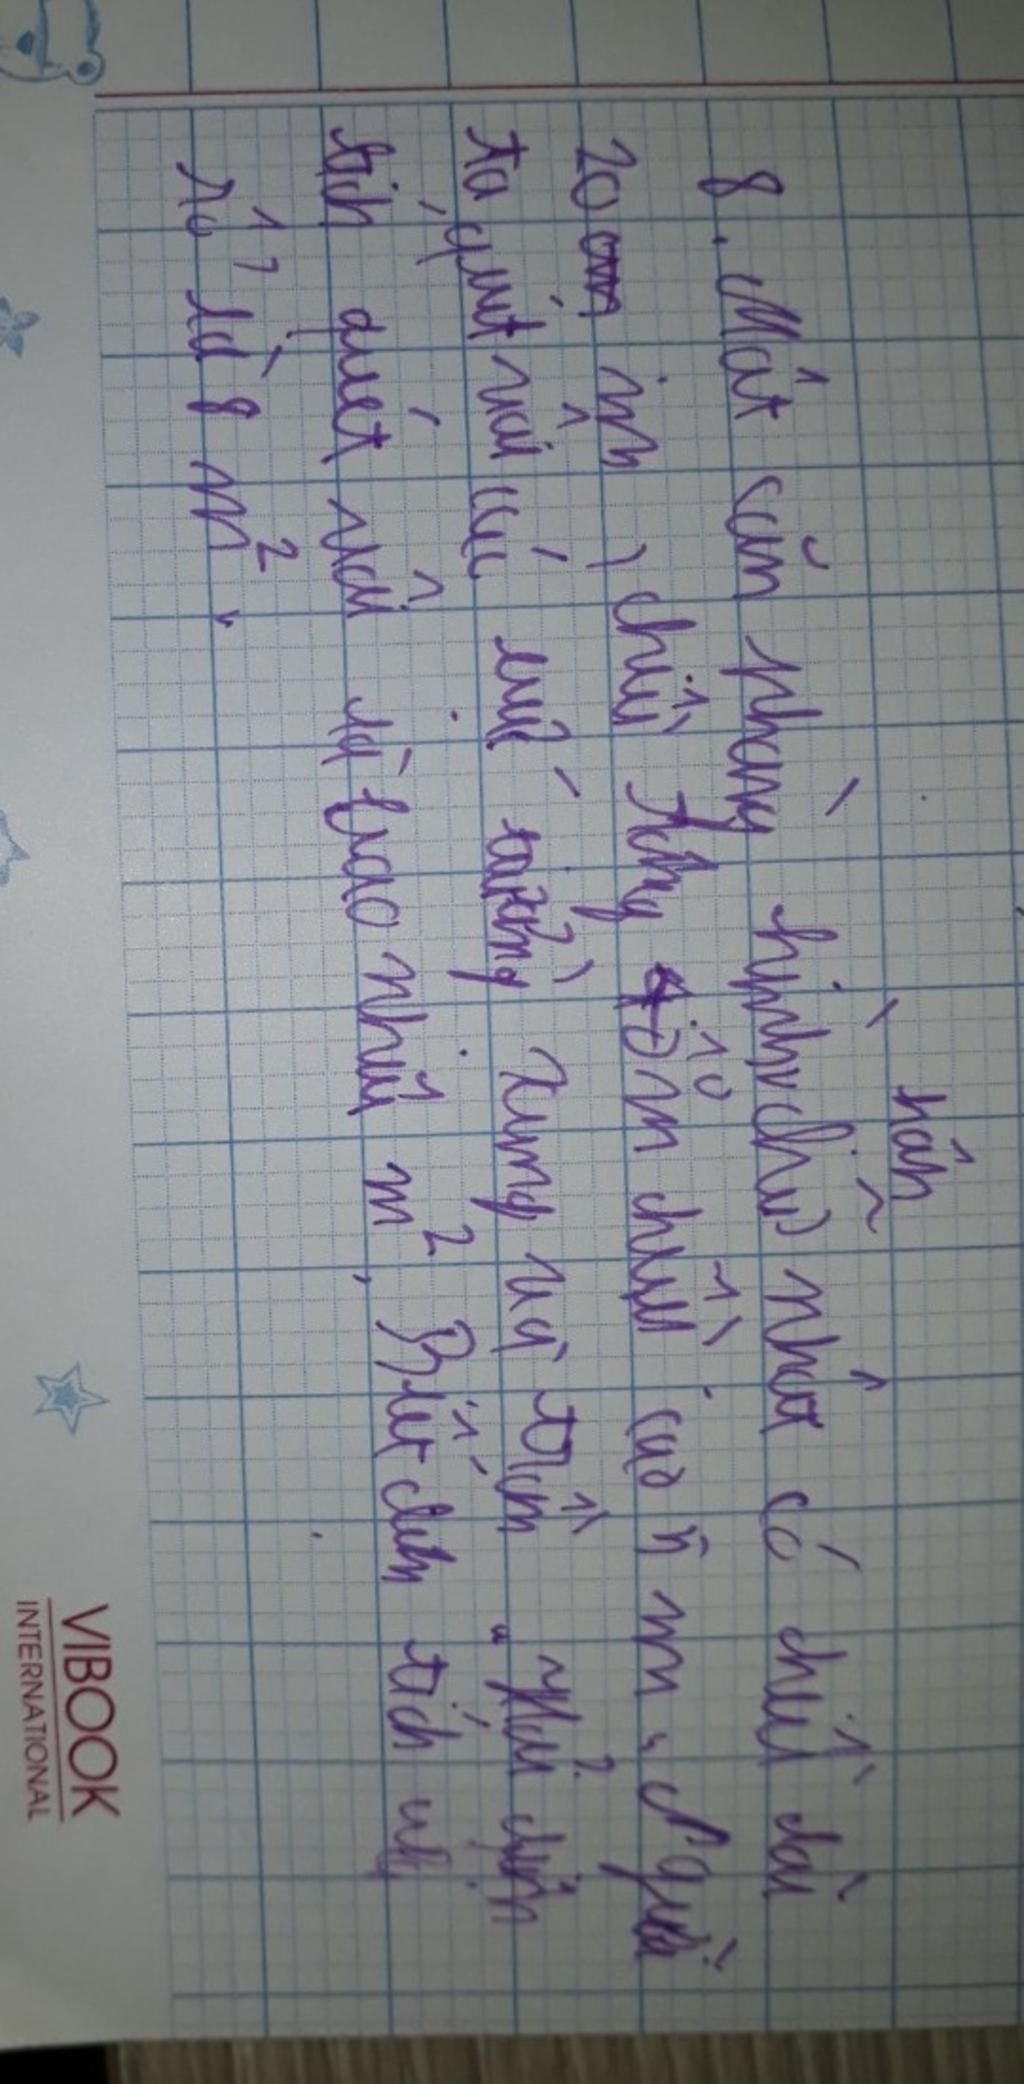 hân
8. Một căn phòng hình chữ nhật có chiều dài
20 m, chiều rộng m chiều cao m. Người
ta quét vôi các bức tường xung và trần. Hỏi diện
tích quét vôi là bao nhiêu m², Biết diện tích
là 8 m².
VIBOOK
INTERNATIONAL